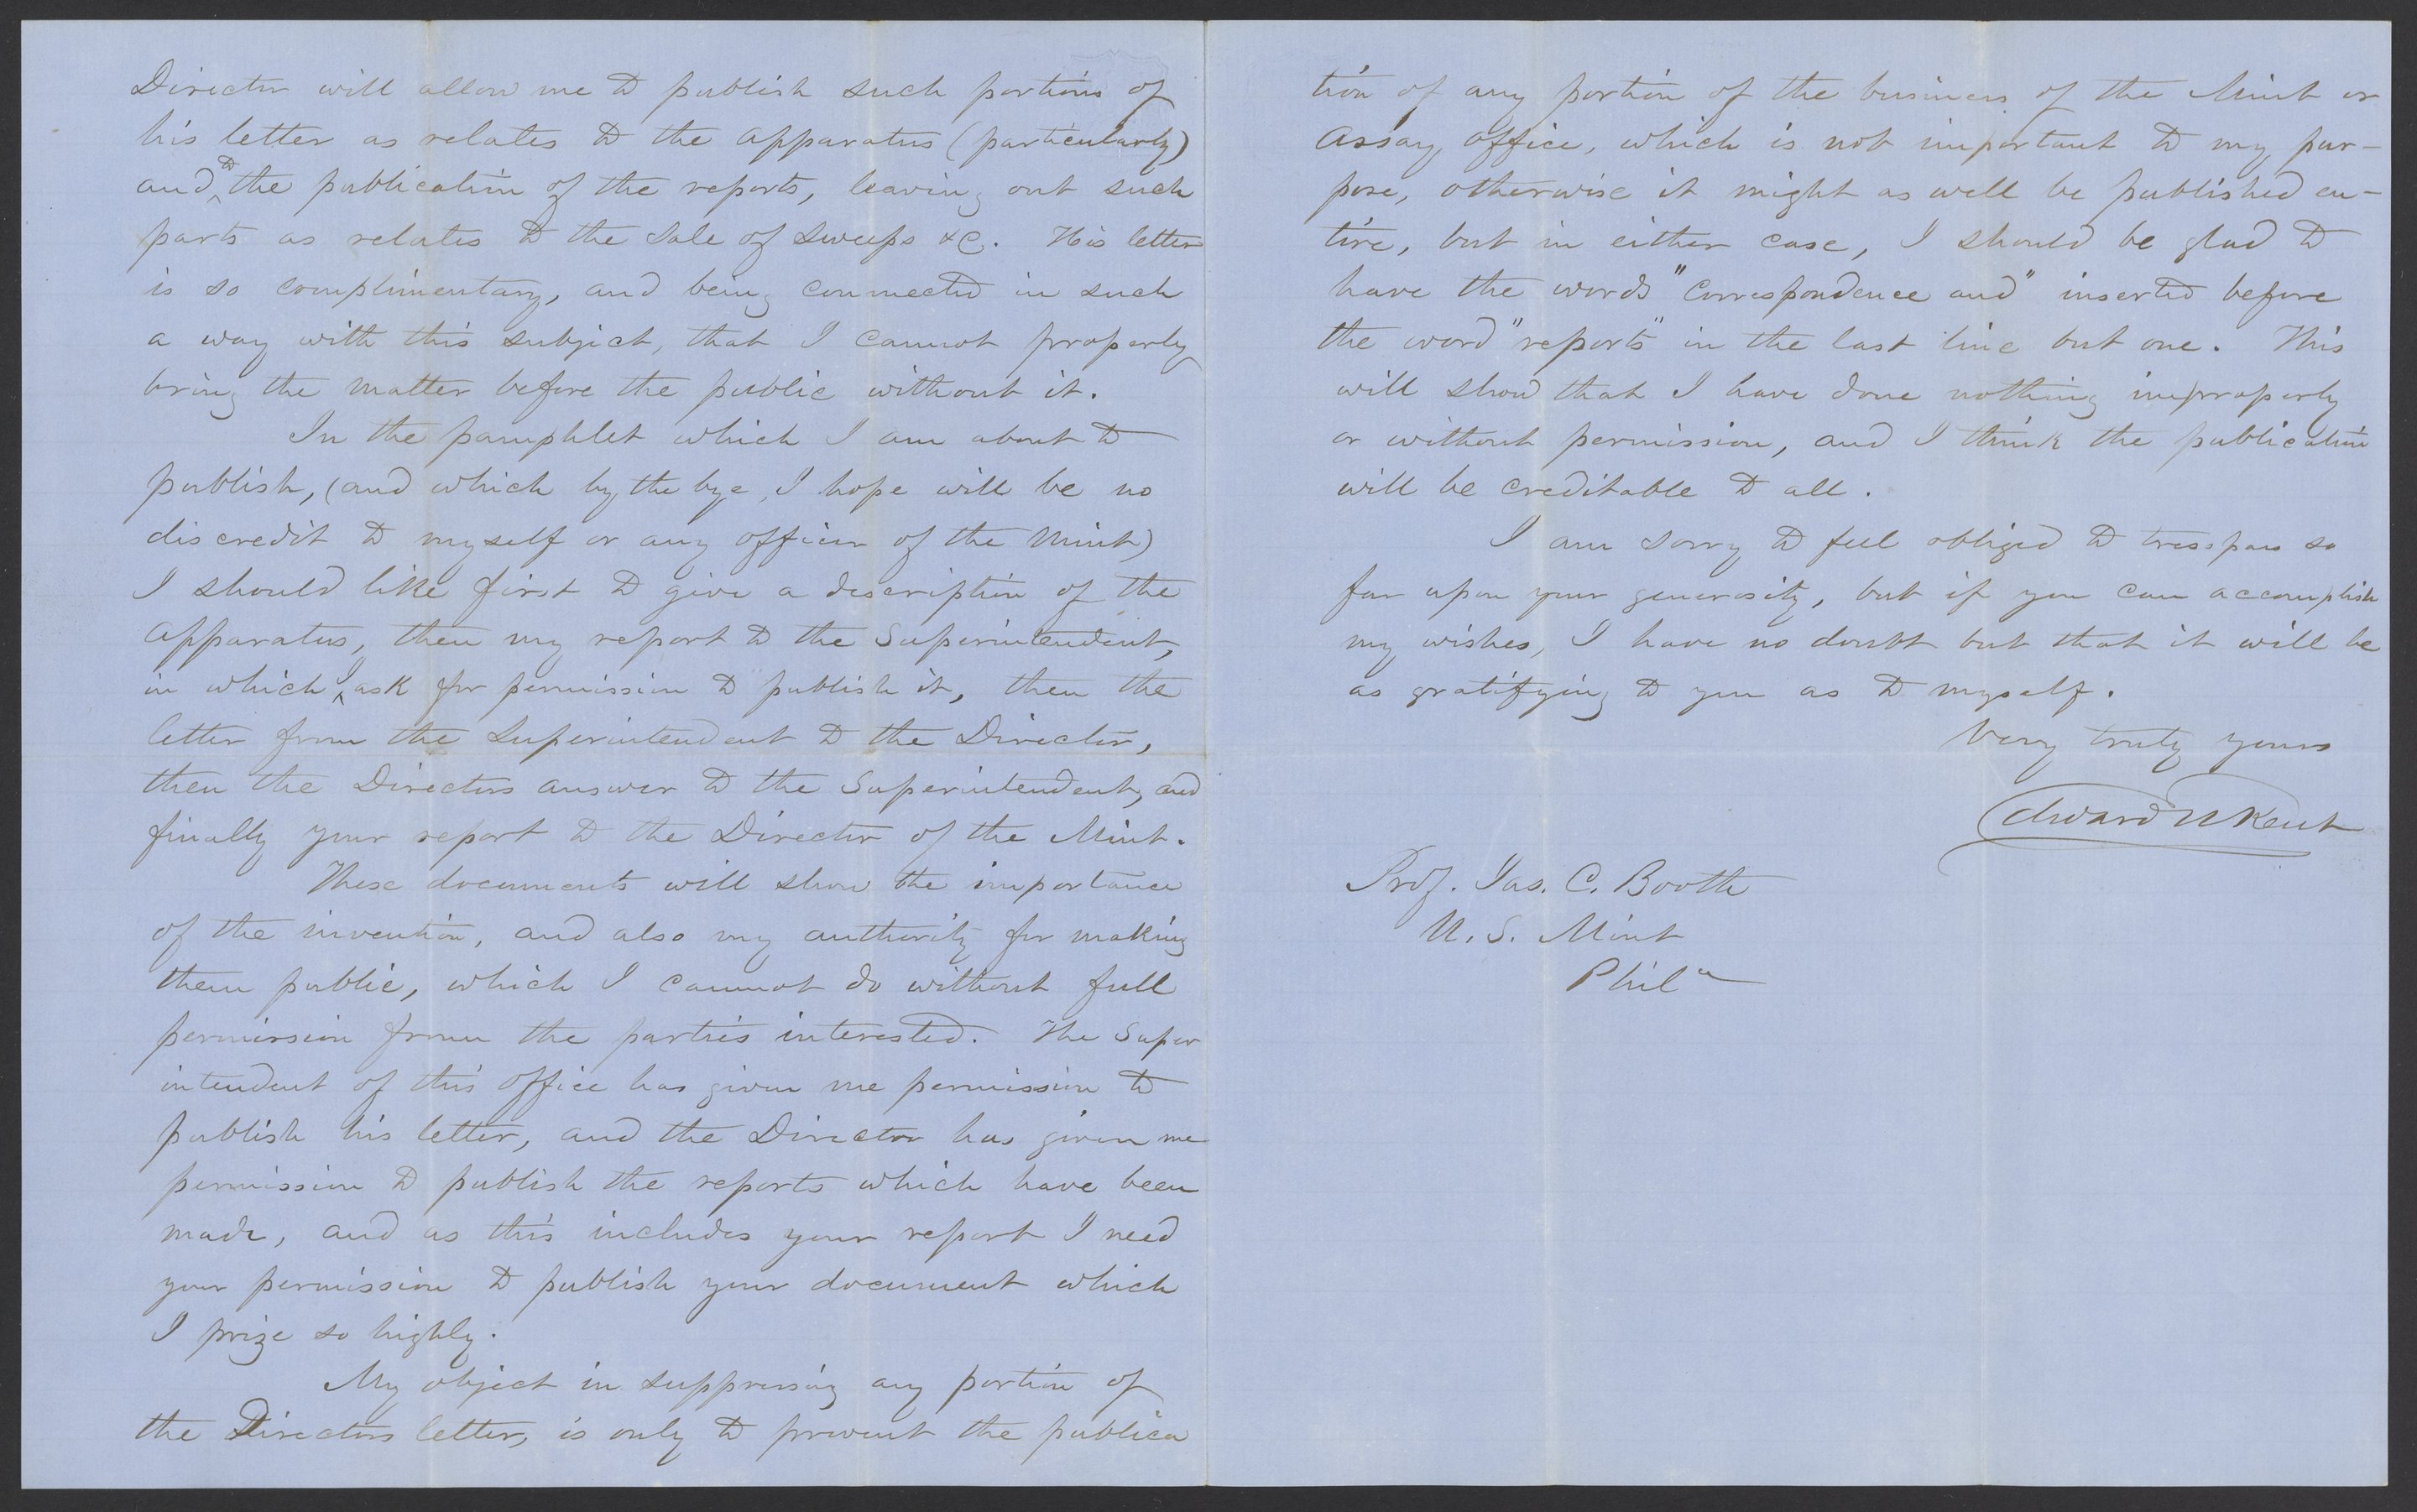 Director will allow me to publish such portions of
his letter as relates to the apparatus (particularly)
and to the publication of the reports, leaving out such
parts as relates to the sale of sweeps &c. His letter
is so complimentary, and being connected in such
a way with this subject, that I cannot properly
bring the matter before the public without it.
In the pamphlet which I am about to
publish, (and which by the bye, I hope will be no
discredit to myself or any officer of the Mint)
I should like first to give a description of the
apparatus, then my report to the Superintendent,
in which I ask for permission to publish it, then the
letter from the Superintendent to the Director,
then the Directors answer to the Superintendent, and
finally your report to the Director of the Mint.
These documents will show the importance
of the invention, and also my authority for making
them public, which I cannot do without full
permission from the parties interested. The Super
intendent of this office has given me permission to
publish his letter, and the Director has given me
permission to publish the reports which have been
made, and as this includes your report I need
your permission to publish your document which
I prize so highly.
My object in suppressing any portion of
the Directors letter, is only to prevent the publica
tion of any portion of the business of the Mint or
Assay office, which is not important to my pur-
pose, otherwise it might as well be published en-
tire, but in either case, I should be glad to
have the words "Correspondence and" inserted before
the word "reports" in the last line but one. This
will show that I have done nothing improperly
or without permission, and I think the publication
will be creditable to all.
I am sorry to feel obliged to tresspass so
far upon your generosity, but if you can accomplish
my wishes, I have no doubt but that it will be
as gratifying to you as to myself.
Very truly yours
Edward N Kent
Prof. Jas. C. Booth
U. S. Mint
Phila